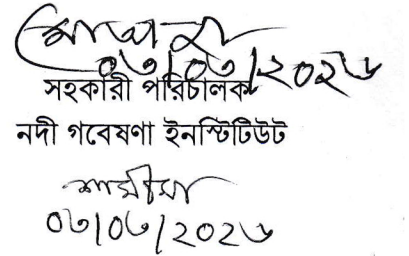 ০৩/০৩/২০২৬
সহকারী পরিচালক
নদী গবেষণা ইনস্টিটিউট
শামীমা
০৩/০৩/২০২৬